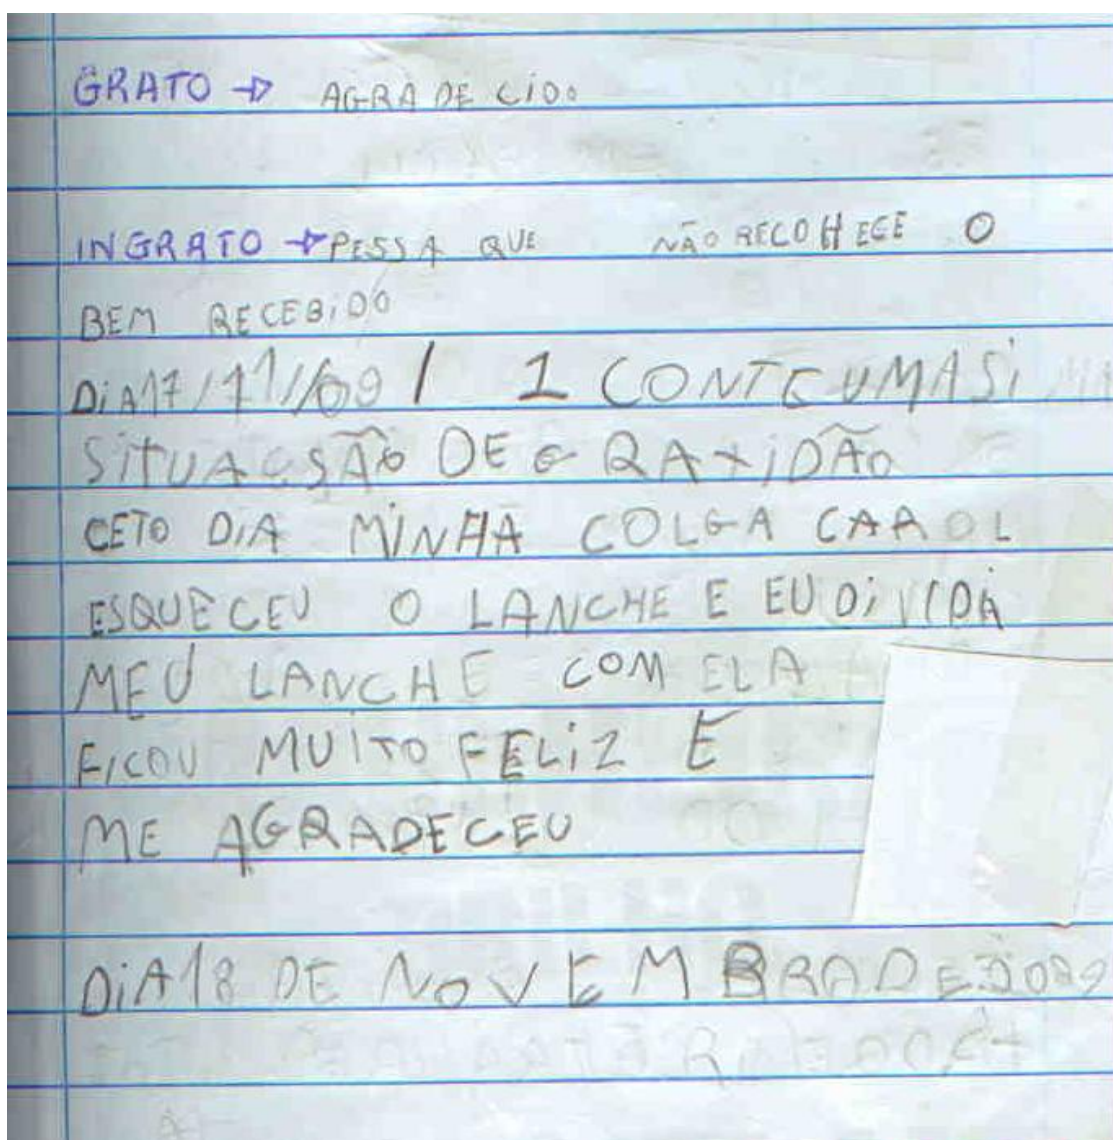 GRATO → AGRADECIDO
INGRATO → PESSA QUE NÃO RECOHECE O
BEM RECEBIDO
DIA 17/11/09 / 1 CONTEUMASI
SITUACSÃO DE GRAXIDÃO
CETO DIA MINHA COLGA CAROL
ESQUECEU O LANCHE E EU DIVIDI
MEU LANCHE COM ELA
FICOU MUITO FELIZ E
ME AGRADECEU
DIA 18 DE NOVEMBRA DE 2009